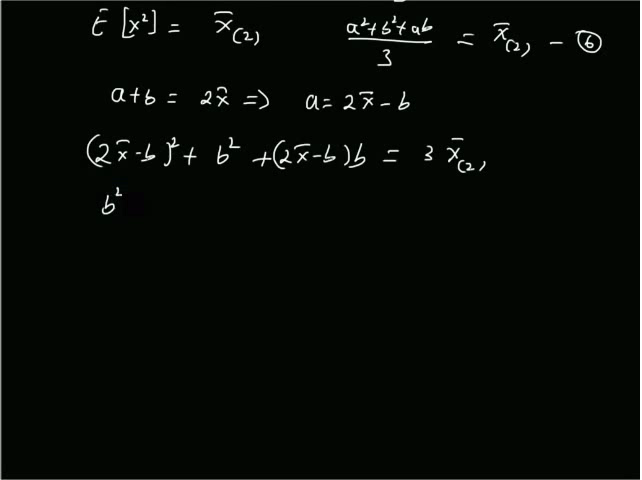 E [x²] = x̄₍₂₎   (a²+b²+ab)/3 = x̄₍₂₎ - ⑥
a+b = 2x̄ => a = 2x̄ - b
(2x̄ - b)² + b² + (2x̄ - b)b = 3 x̄₍₂₎
b²